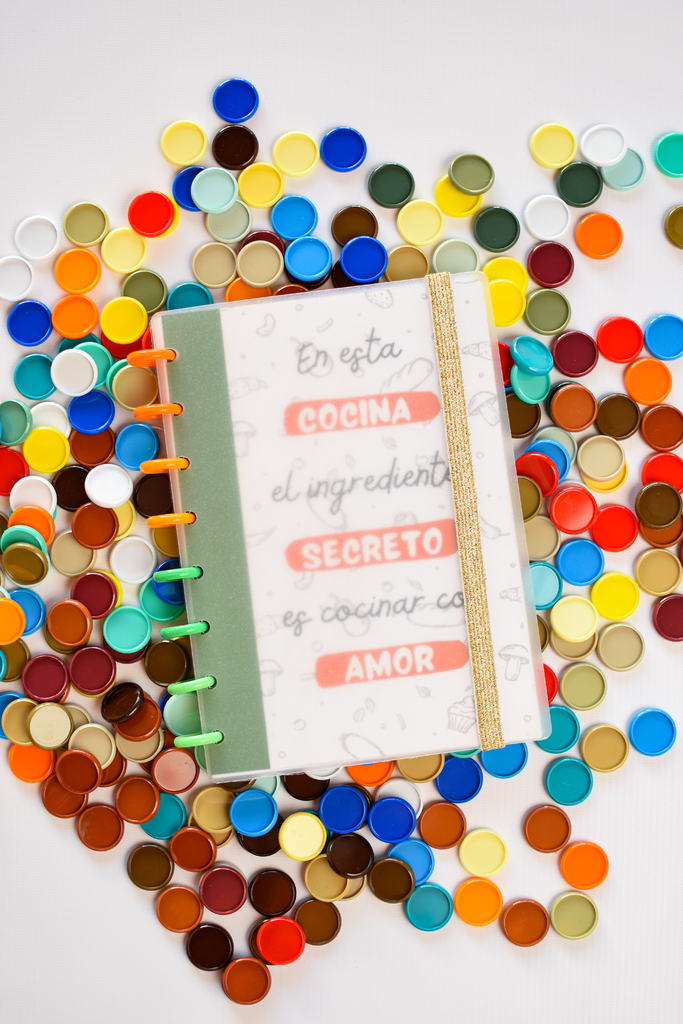 En esta
COCINA
el ingrediente
SECRETO
es cocinar co
AMOR